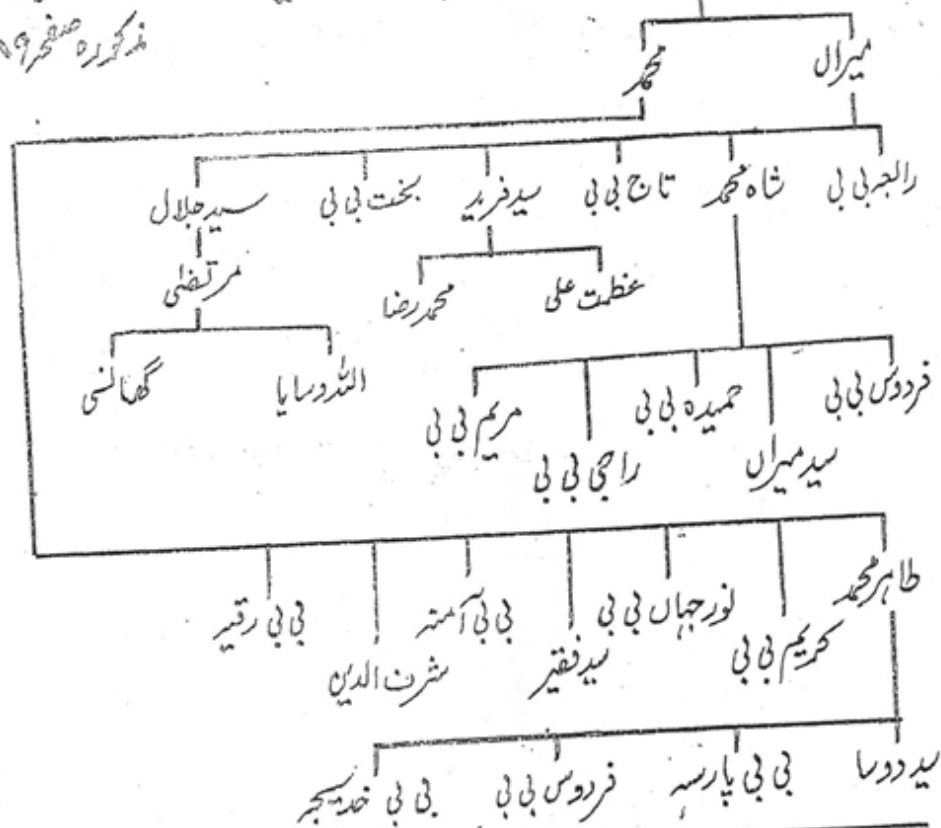 مذکورہ صفحہ ۱۹
میراں محمد
رابعہ بی بی شاہ محمد تاج بی بی سید فرید بخت بی بی سید جلال
عظمت علی محمد رضا مرتضیٰ
فردوس بی بی سید میراں حمیدہ بی بی راجی بی بی مریم بی بی اللہ وسایا گھانسی
طاہر محمد کریم بی بی نور جہاں بی بی سید فقیر بی بی آمنہ شرف الدین بی بی رقیہ
سید دوسا بی بی پارسہ فردوس بی بی بی بی خدیجہ